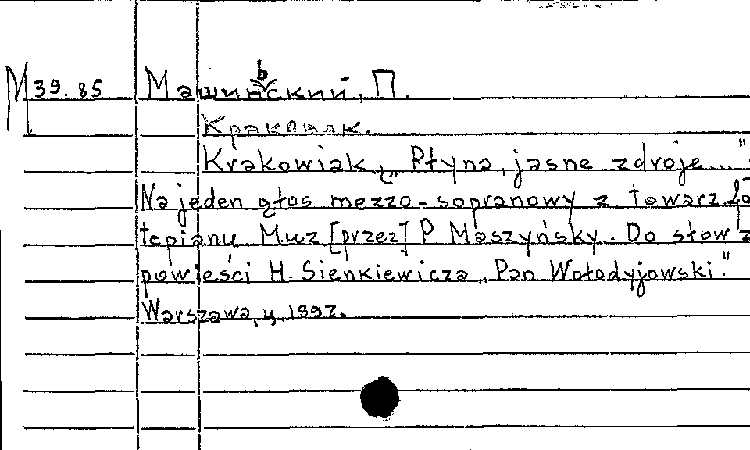 М 39.85 Машиньский, П.
Краковяк.
Krakowiak „Płyną, jasne zdroje..."
Na jeden głos mezzo-sopranowy z towarz. fo
tepianu Muz [przez] P Maszyńsky. Do słow z
powieści H. Sienkiewicza „Pan Wołodyjowski."
Warszawa, ц. 1897.